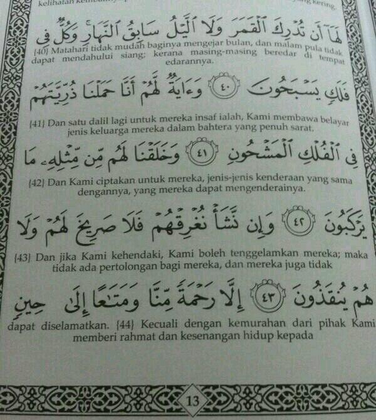 لَهَا أَن تُدْرِكَ الْقَمَرَ وَلَا الَّيْلُ سَابِقُ النَّهَارِ ۚ وَكُلٌّ فِي
[40] Matahari tidak mudah baginya mengejar bulan, dan malam pula tidak
dapat mendahului siang; kerana masing-masing beredar di tempat
edarannya.
فَلَكٍ يَسْبَحُونَ ٤٠ وَءَايَةٌ لَّهُمْ أَنَّا حَمَلْنَا ذُرِّيَّتَهُمْ
[41] Dan satu dalil lagi untuk mereka insaf ialah, Kami membawa belayar
jenis keluarga mereka dalam bahtera yang penuh sarat.
فِي الْفُلْكِ الْمَشْحُونِ ٤١ وَخَلَقْنَا لَهُم مِّن مِّثْلِهِ مَا
[42] Dan Kami ciptakan untuk mereka, jenis-jenis kenderaan yang sama
dengannya, yang mereka dapat mengenderainya.
يَرْكَبُونَ ٤٢ وَإِن نَّشَأْ نُغْرِقْهُمْ فَلَا صَرِيخَ لَهُمْ وَلَا
[43] Dan jika Kami kehendaki, Kami boleh tenggelamkan mereka; maka
tidak ada pertolongan bagi mereka, dan mereka juga tidak
هُمْ يُنقَذُونَ ٤٣ إِلَّا رَحْمَةً مِّنَّا وَمَتَاعًا إِلَىٰ حِينٍ
dapat diselamatkan. [44] Kecuali dengan kemurahan dari pihak Kami
memberi rahmat dan kesenangan hidup kepada
13